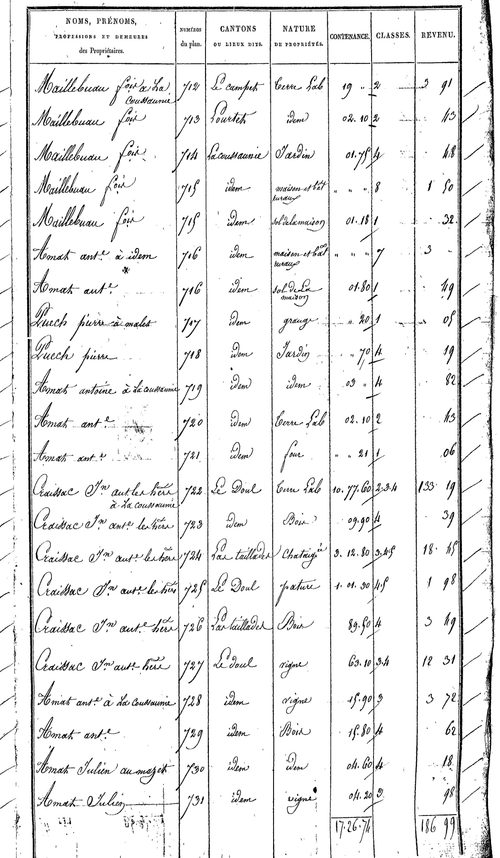 NOMS, PRÉNOMS, PROFESSIONS ET DEMEURES des Propriétaires. NUMÉROS du plan. CANTONS OU LIEUX DITS. NATURE DE PROPRIÉTÉS. CONTENANCE. CLASSES. REVENU.
Maillebuau foix à La Coussaunie 712 Le campet Terre Lab 19 " 2 3 91
Maillebuau foix 713 Lourtet idem 02.10 2 43
Maillebuau foix 714 La coussaunie Jardin 01.75 4 48
Maillebuau foix 715 idem maison et bât ruraux " " " 8 1 50
Maillebuau foix 715 idem sol de la maison 01.18 1 32
Amat ant.e à idem 716 idem maison et bât ruraux " " " 7 3 "
Amat ant.e 716 idem sol de La maison 01.80 1 49
Puech pierre à malet 717 idem grange " 20 1 05
Puech pierre 718 idem Jardin " 70 4 19
Amat antoine à La coussaunie 719 idem idem 03 " 4 82
Amat ant.e 720 idem Terre Lab 02.10 2 43
Amat ant.e 721 idem four " 21 1 06
Craissac J.n ant. les hères à La coussaunie 722 Le Doul Terre Lab 10.77.60 2.3.4 133 19
Craissac J.n ant.e les hères 723 idem Bois 09.90 4 39
Craissac J.n ant.e les hères 724 Las taillades Chataigie 3.12.80 3.4.5 18 45
Craissac J.n ant.e les hères 725 Le Doul pature 1.01.30 4.5 1 98
Craissac J.n ant.e hères 726 Las taillades Bois 89.50 4 3 49
Craissac J.n ant.e hères 727 Le doul vigne 63.10 3.4 12 31
Amat ant.e à La coussaunie 728 idem vigne 15.90 3 3 72
Amat ant.e 729 idem Bois 15.80 4 62
Amat Julien au mazet 730 idem idem 04.60 4 18
Amat Julien 731 idem vigne 04.20 3 98
17.26.74 186 99